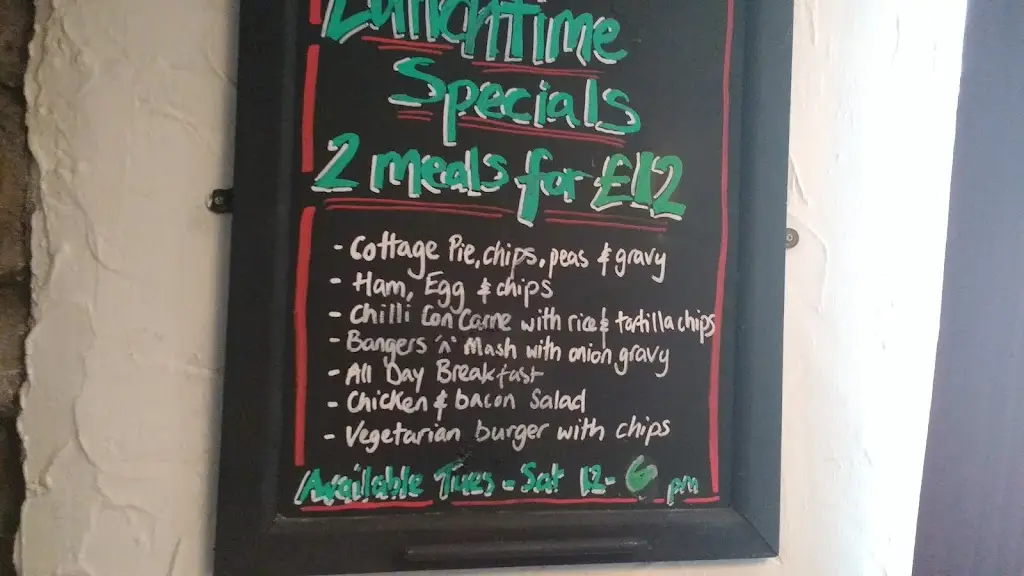 Lunchtime
Specials
2 meals for £12
- Cottage Pie, chips, peas & gravy
- Ham, Egg & chips
- Chilli Con Carne with rice & tortilla chips
- Bangers 'n' Mash with onion gravy
- All Day Breakfast
- Chicken & bacon Salad
- Vegetarian burger with chips
Available Tues - Sat 12- 6 pm